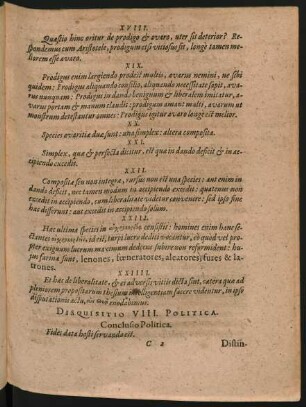 XVIII.
Quæstio hinc oritur de prodigo & avaro, uter sit deterior? Re-
spondemus cum Aristotele, prodigum etsi vitiosus sit, longè tamen me-
liorem esse avaro.
XIX.
Prodigus enim largiendo prodest multis, avarus nemini, ne sibi
quidem: Prodigus aliquando consilio, aliquando necessitate sapit, ava-
rus nunquam: Prodigus in dando benignum & liberalem imitatur, a-
varus portam & manum claudit: prodigum amant multi, avarum ut
monstrum detestantur omnes: Prodigus igitur avaro longè est melior.
XX.
Species avaritiæ duæ sunt: una simplex: altera composita.
XXI.
Simplex, quæ & perfecta dicitur, est quæ in dando deficit & in ac-
cipiendo excedit.
XXII.
Composita seu non integra, rursus non est una species: aut enim in
dando deficit, nec tamen modum in accipiendo excedit: quatenus non
excedit in accipiendo, cum liberalitate videtur convenire: sed ipso fine
hæc differunt: aut excedit in accipiendo solum.
XXIII.
Hæc ultima species in consistit: homines enim hanc se-
ctantes id est, turpi lucro dediti vocantur, eò quòd vel pro-
pter exiguum lucrum maximum dedecus subire non reformident: hu-
jus farinæ sunt, lenones, fœneratores, aleatores, fures & la-
trones.
XXIIII.
Et hæc de liberalitate, & ei adversis vitiis dicta sint, cætera quæ ad
pleniorem propositarum thesium intelligentiam facere videntur, in ipso
disputationis actu, enodabimus.
DISQUISITIO VIII. POLITICA.
Conclusio Politica.
Fides data hosti servanda est.
C 2 Distin-